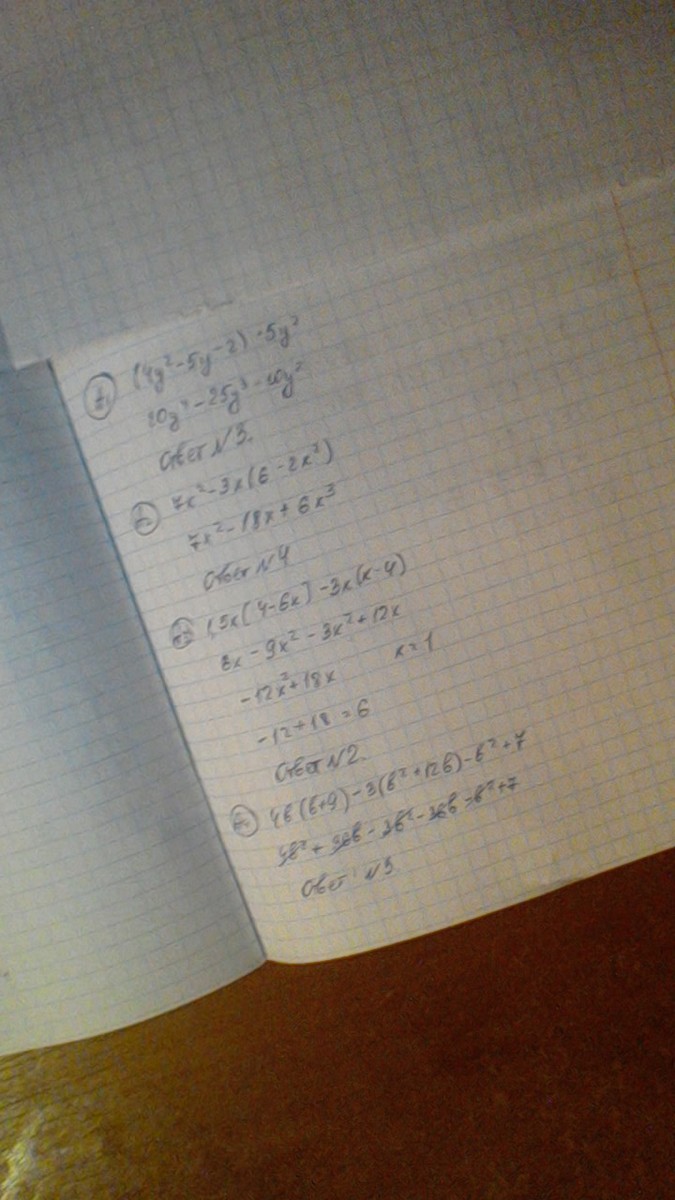 (4y²-5y-2)·5y²
20y⁴-25y³-10y²
Ответ N3.
7x²-3x(6-2x²)
7x²-18x+6x³
Ответ N4
1,5x(4-6x)-3x(x-4)
6x-9x²-3x²+12x
-12x²+18x x=1
-12+18=6
Ответ N2.
4b(b+9)-3(b²+12b)-b²+7
4b²+36b-3b²-36b-b²+7
Ответ: N3